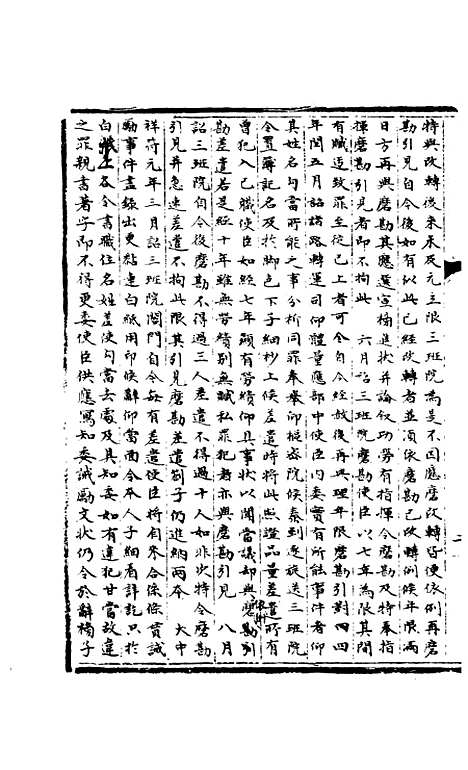 特與改轉後來未及元立限三班院為是不因應磨改轉皆便依例再磨
勘引見自今後如有似此已經改轉者並須依磨勘已改轉例候年限滿
日方再與磨勘其應選宣檎進狀并論敘功勞有指揮令磨勘及特奉指
揮磨勘引見者即不拘此　六月詔三班院磨勘使臣以七年為限其間
有贓違致罪至徒已上者可令自今經赦後再與理年限磨勘引對四
年閏五月詔諸路轉運司仰體量應部中使臣內委實有所能事件者仰
其姓名勾當所能之事分析同罪奉舉仰樞密院候奏到逐旋送三班院
令置簿記名及於脚色下子細抄上候差遣時將此照證品量差遣所有
曾犯入己贓使臣如經七年顯有勞績仰具事狀以聞當議却與磨勘引
勘差遣若是經十年雖無勞績別無贓私罪犯者亦與磨勘引見　八月
詔三班院自今後磨勘不得過三人差遣不得過十人如非次特令磨勘
引見并急速差遣不拘此限其引見磨勘差遣劄子仍進納兩本　大中
祥符元年三月詔三班院閤門自今每有差遣使臣將自來合條條貫誡
勵事件盡錄出更黏連白紙用印候辭仰當面令本人子細看詳記只於
白紙上各令書職位名姓差使勾當去處及具知委如有違犯甘當故違
之罪親書著字即不得更委使臣供應寫知委誡勵文狀仍令於辭榜子